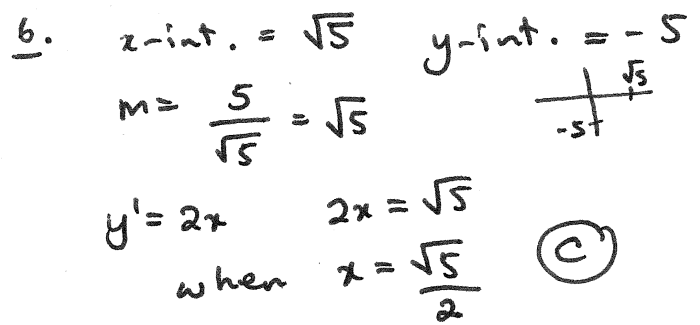 6. x-int. = √5 y-int. = -5
m = 5/√5 = √5
√5
-5
y' = 2x 2x = √5
when x = √5/2
C